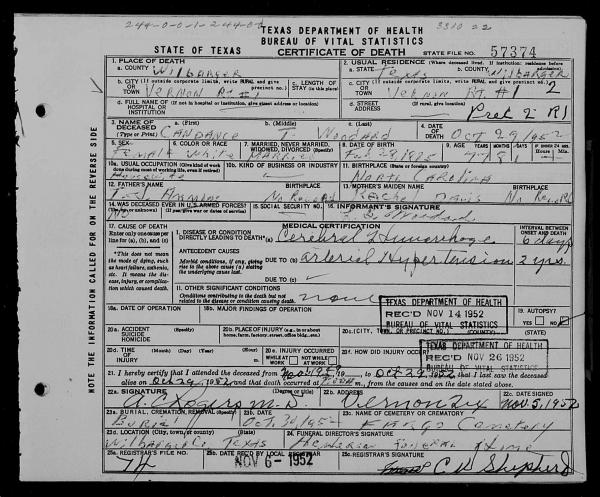 TEXAS DEPARTMENT OF HEALTH
BUREAU OF VITAL STATISTICS
STATE OF TEXAS CERTIFICATE OF DEATH STATE FILE NO. 57374
1. PLACE OF DEATH
a. COUNTY Wilbarger
b. CITY (If outside corporate limits, write RURAL and give precinct no.)
Vernon Rt #1
c. LENGTH OF STAY (in this place)
d. FULL NAME OF (If not in hospital or institution, give street address or location)
HOSPITAL OR INSTITUTION
2. USUAL RESIDENCE (Where deceased lived. If institution: residence before admission).
a. STATE Texas b. COUNTY Wilbarger
c. CITY (If outside corporate limits, write RURAL and give precinct no.)
Vernon Rt. #1 2
d. STREET ADDRESS (If rural, give location)
Prct 2 R1
3. NAME OF DECEASED (Type or Print) a. (First) b. (Middle) c. (Last)
Candance T. Woodard
4. DATE OF DEATH Oct 29, 1952
5. SEX Female
6. COLOR OR RACE White
7. MARRIED, NEVER MARRIED, WIDOWED, DIVORCED (Specify) Married
8. DATE OF BIRTH
9. AGE YEARS MONTHS DAYS
10a. USUAL OCCUPATION (Give kind of work done during most of working life, even if retired)
Housewife
10b. KIND OF BUSINESS OR INDUSTRY
11. BIRTHPLACE (State or foreign country)
North Carolina
12. FATHER'S NAME BIRTHPLACE
No Record
13. MOTHER'S MAIDEN NAME BIRTHPLACE
Rachel Davis No Record
14. WAS DECEASED EVER IN U.S. ARMED FORCES? (If yes, give war or dates of service)
No
15. SOCIAL SECURITY NO.
16. INFORMANT'S SIGNATURE
Woodard
17. CAUSE OF DEATH
Enter only one cause per line for (a), (b), and (c)
*This does not mean the mode of dying, such as heart failure, asthenia, etc. It means the disease, injury, or complication which caused death.
MEDICAL CERTIFICATION
I. DISEASE OR CONDITION DIRECTLY LEADING TO DEATH* (a) Cerebral Hemorrhage
ANTECEDENT CAUSES
Morbid conditions, if any, giving rise to the above cause (a) stating the underlying cause last.
DUE TO (b) arterial Hypertension
DUE TO (c)
II. OTHER SIGNIFICANT CONDITIONS
Conditions contributing to the death but not related to the disease or condition causing death.
none
INTERVAL BETWEEN ONSET AND DEATH
6 days
2 yrs.
18a. DATE OF OPERATION
18b. MAJOR FINDINGS OF OPERATION
19. AUTOPSY?
YES NO
TEXAS DEPARTMENT OF HEALTH
REC'D NOV 14 1952
BUREAU OF VITAL STATISTICS
20a. ACCIDENT SUICIDE HOMICIDE (Specify)
20b. PLACE OF INJURY (e.g., in or about home, farm, factory, street, office bldg., etc.)
20c. (CITY, TOWN, OR PRECINCT NO.) (COUNTY) (STATE)
20d. TIME OF INJURY (Month) (Day) (Year) (Hour) m.
20e. INJURY OCCURRED
WHILE AT WORK NOT WHILE AT WORK
20f. HOW DID INJURY OCCUR?
TEXAS DEPARTMENT OF HEALTH
REC'D NOV 26 1952
BUREAU OF VITAL STATISTICS
21. I hereby certify that I attended the deceased from to Oct 29, 1952 that I last saw the deceased
alive on Oct 29, 1952 and that death occurred at m., from the causes and on the date stated above.
22a. SIGNATURE (Degree or title)
Rogers M.D.
22b. ADDRESS
Vernon Tex
22c. DATE SIGNED
Nov. 5, 1952
23a. BURIAL, CREMATION, REMOVAL (Specify)
Burial
23b. DATE
Oct. 30, 1952
23c. NAME OF CEMETERY OR CREMATORY
Fargo Cemetery
23d. LOCATION (City, town, or county) (State)
Wilbarger Co. Texas
24. FUNERAL DIRECTOR'S SIGNATURE
Henderson Funeral Home
25a. REGISTRAR'S FILE NO.
74
25b. DATE REC'D BY LOCAL REGISTRAR
NOV 6 - 1952
25c. REGISTRAR'S SIGNATURE
C W Shepherd
NOTE THE INFORMATION CALLED FOR ON THE REVERSE SIDE